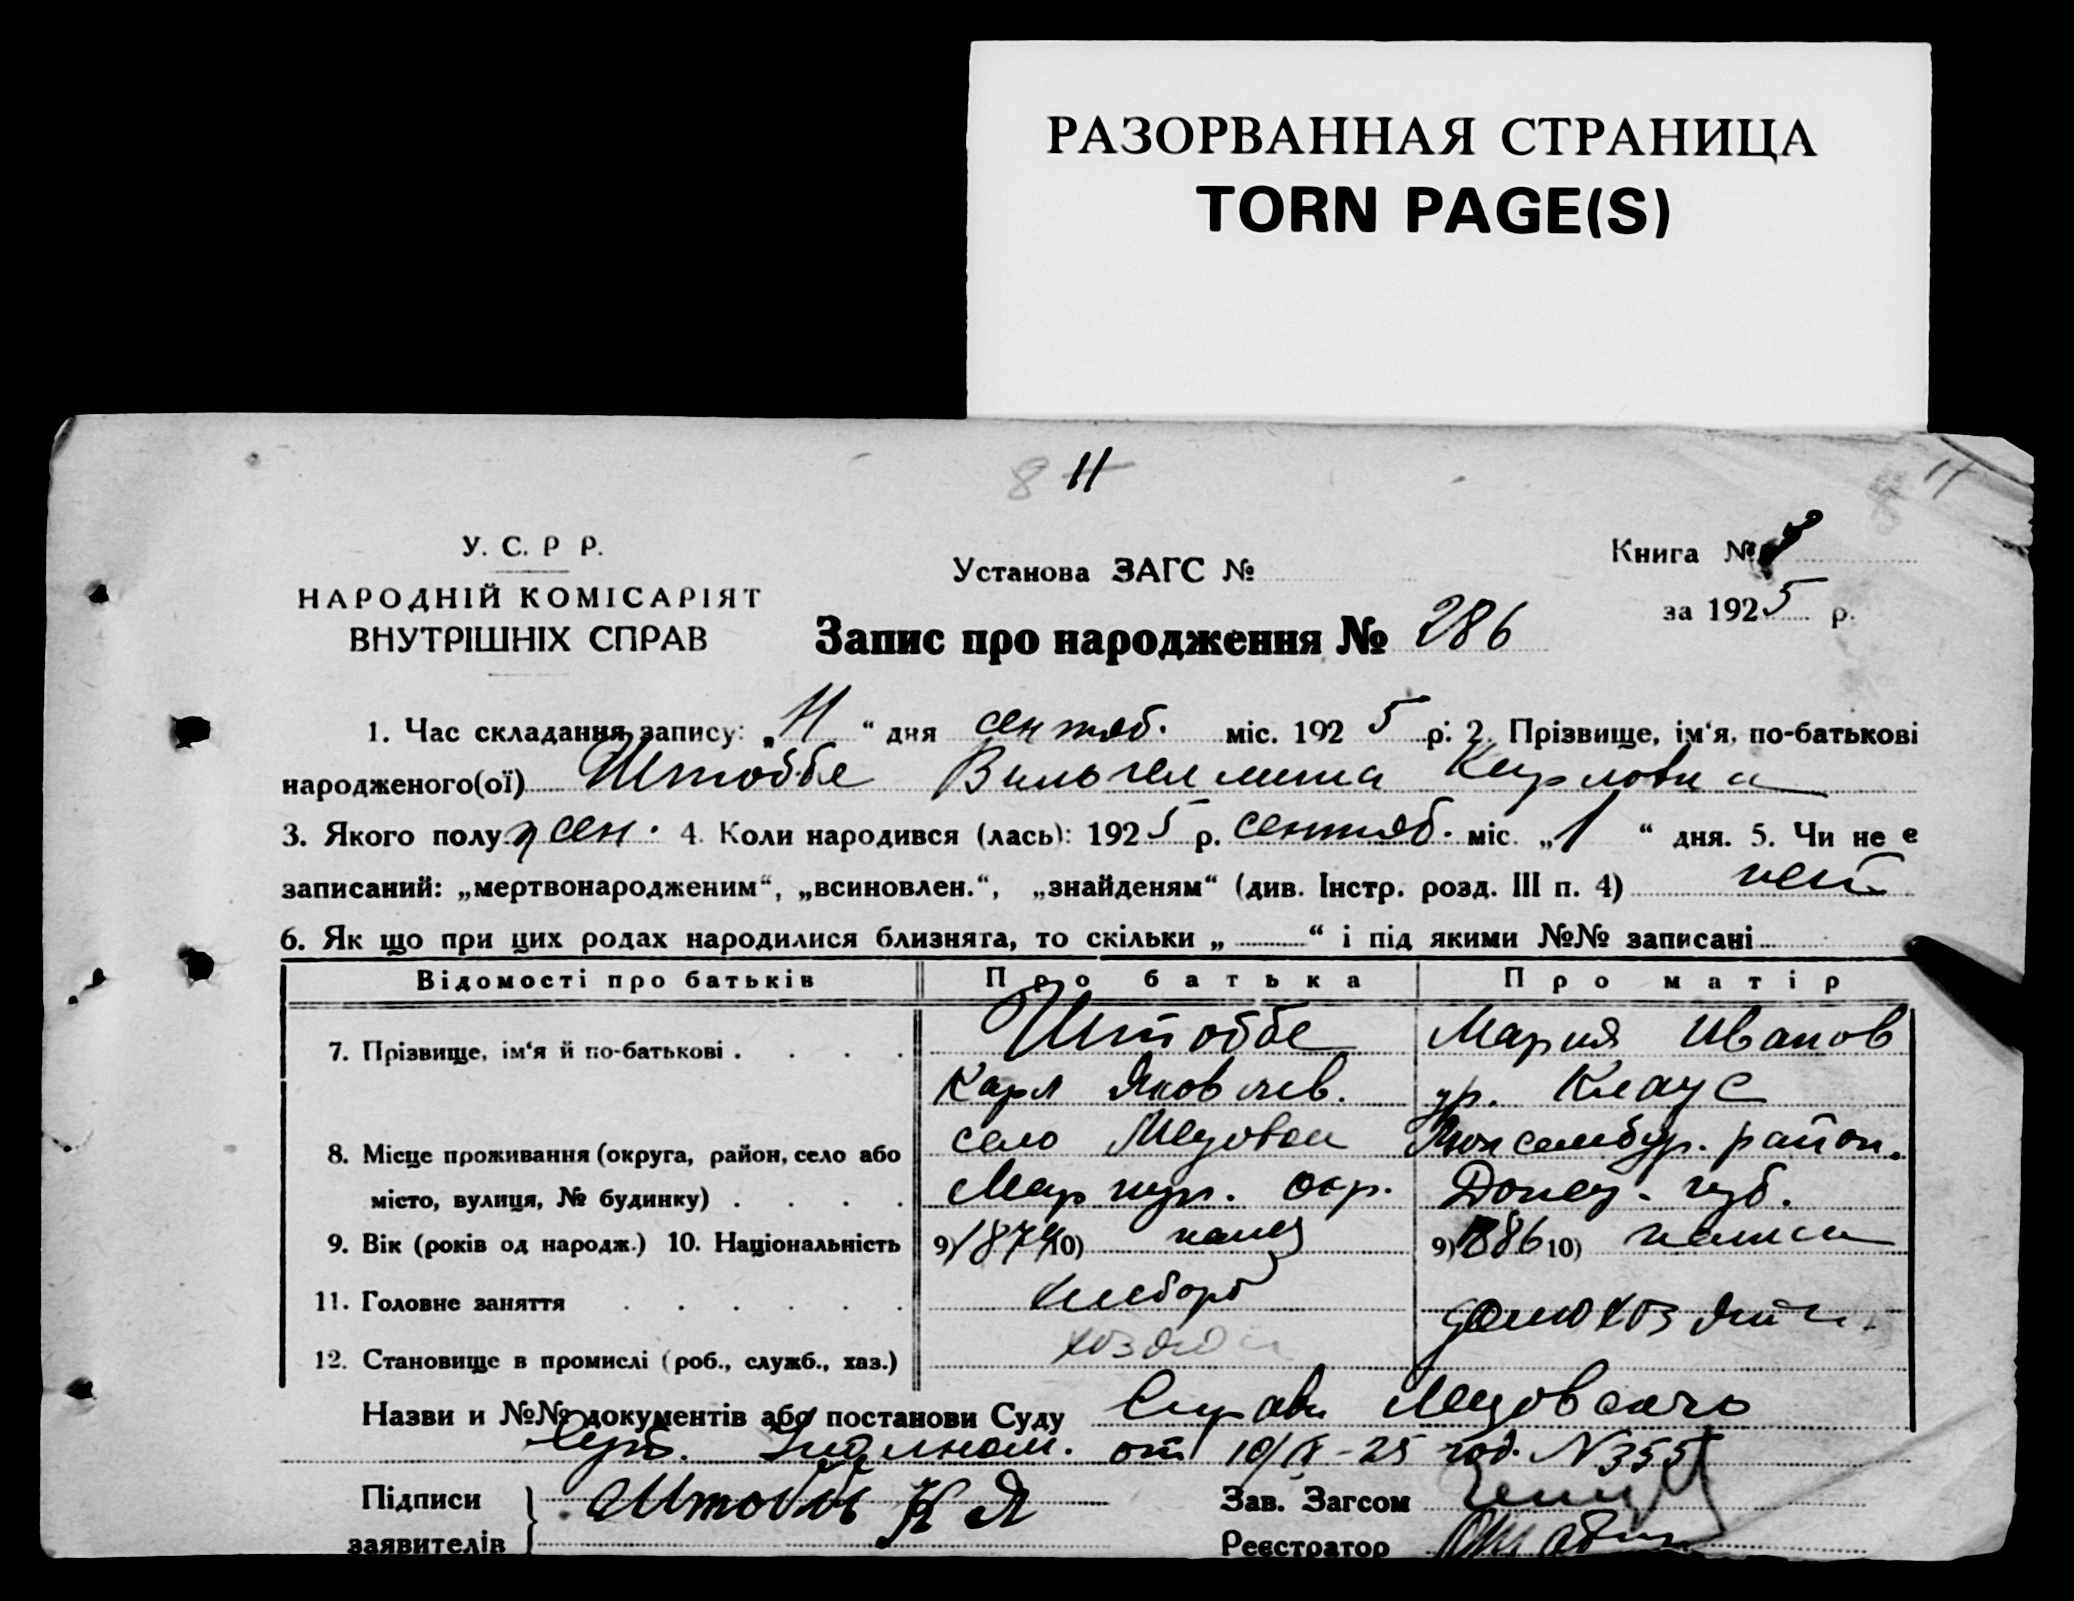 РАЗОРВАННАЯ СТРАНИЦА
TORN PAGE(S)
8 11
11
У. С. Р Р.
НАРОДНІЙ КОМІСАРІЯТ
ВНУТРІШНІХ СПРАВ
Установа ЗАГС №
Книга №
за 1925 р.
Запис про народження № 286
1. Час складання запису: „11“ дня сентяб. міс. 1925 р. 2. Прізвище, ім‘я, по-батькові
народженого(ої) Штоббе Вильгелмина Карловна
3. Якого полу жен. 4. Коли народився (лась): 1925 р. сентяб. міс. „1“ дня. 5. Чи не є
записаний: „мертвонародженим“, „всиновлен.“, „знайденям“ (див. Інстр. розд. III п. 4) нет
6. Як що при цих родах народилися близнята, то скільки „ “ і під якими №№ записані
Відомості про батьків Про батька Про матір
7. Прізвище, ім‘я й по-батькові Штоббе Мария Иванов
Карл Яковлев. ур. Клаус
8. Місце проживання (округа, район, село або село Люксембур. район.
місто, вулиця, № будинку) Мариуп. окр. Донец. губ.
9. Вік (років од народж.) 10. Національність 9) 1874 10) немец 9) 1886 10) немка
11. Головне заняття хлебороб домохозяйка
12. Становище в промислі (роб., служб., хаз.) хозяин
Назви и №№ документів або постанови Суду Справка
от 10/IX-25 год. N 355
Підписи Штоббе К Я Зав. Загсом
заявителів Реєстратор